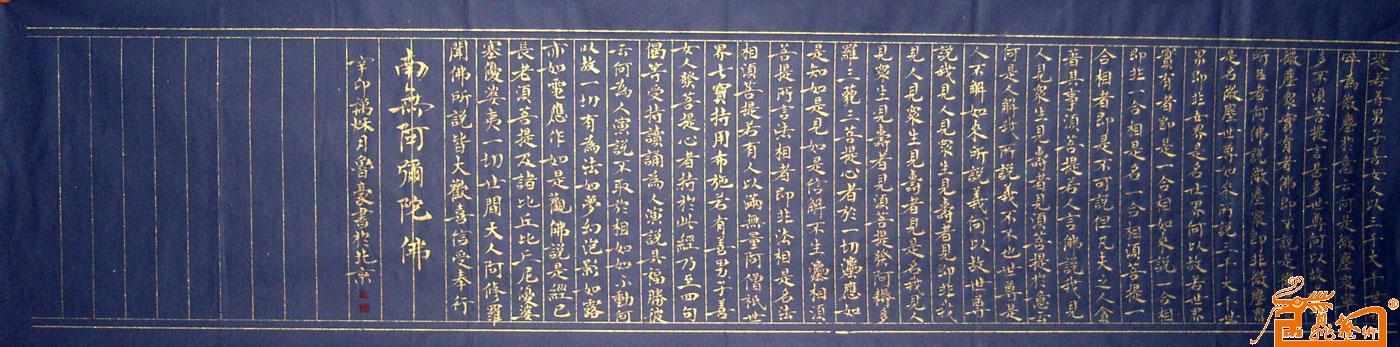 提若善男子善女人以三千大千
碎為微塵於意云何是微塵眾寧
多不須菩提言甚多世尊何以故
微塵眾實有者佛即不說是
所以者何佛說微塵眾即非微塵眾
是名微塵世尊如來所說三千大千世
界即非世界是名世界何以故若世界
實有者即是一合相如來說一合相
即非一合相是名一合相須菩提一
合相者即是不可說但凡夫之人貪
著其事須菩提若人言佛說我見
人見衆生見壽者見須菩提於意云
何是人解我所說義不不也世尊是
人不解如來所說義何以故世尊
說我見人見衆生見壽者見即非我
見人見衆生見壽者見是名我見人
見衆生見壽者見須菩提發阿耨多
羅三藐三菩提心者於一切灋應如
是知如是見如是信解不生灋相須
菩提所言法相者即非法相是名法
相須菩提若有人以滿無量阿僧祇世
界七寶持用布施若有善男子善
女人發菩提心者持於此經乃至四句
偈等受持讀誦為人演說其福勝彼
云何為人演說不取於相如如不動何
以故一切有為法如夢幻泡影如露
亦如電應作如是觀佛說是經已
長老須菩提及諸比丘比丘尼優婆
塞優婆夷一切世間天人阿修羅
聞佛所說皆大歡喜信受奉行
南無阿彌陀佛
辛卯菊秋月魯豪書於北京